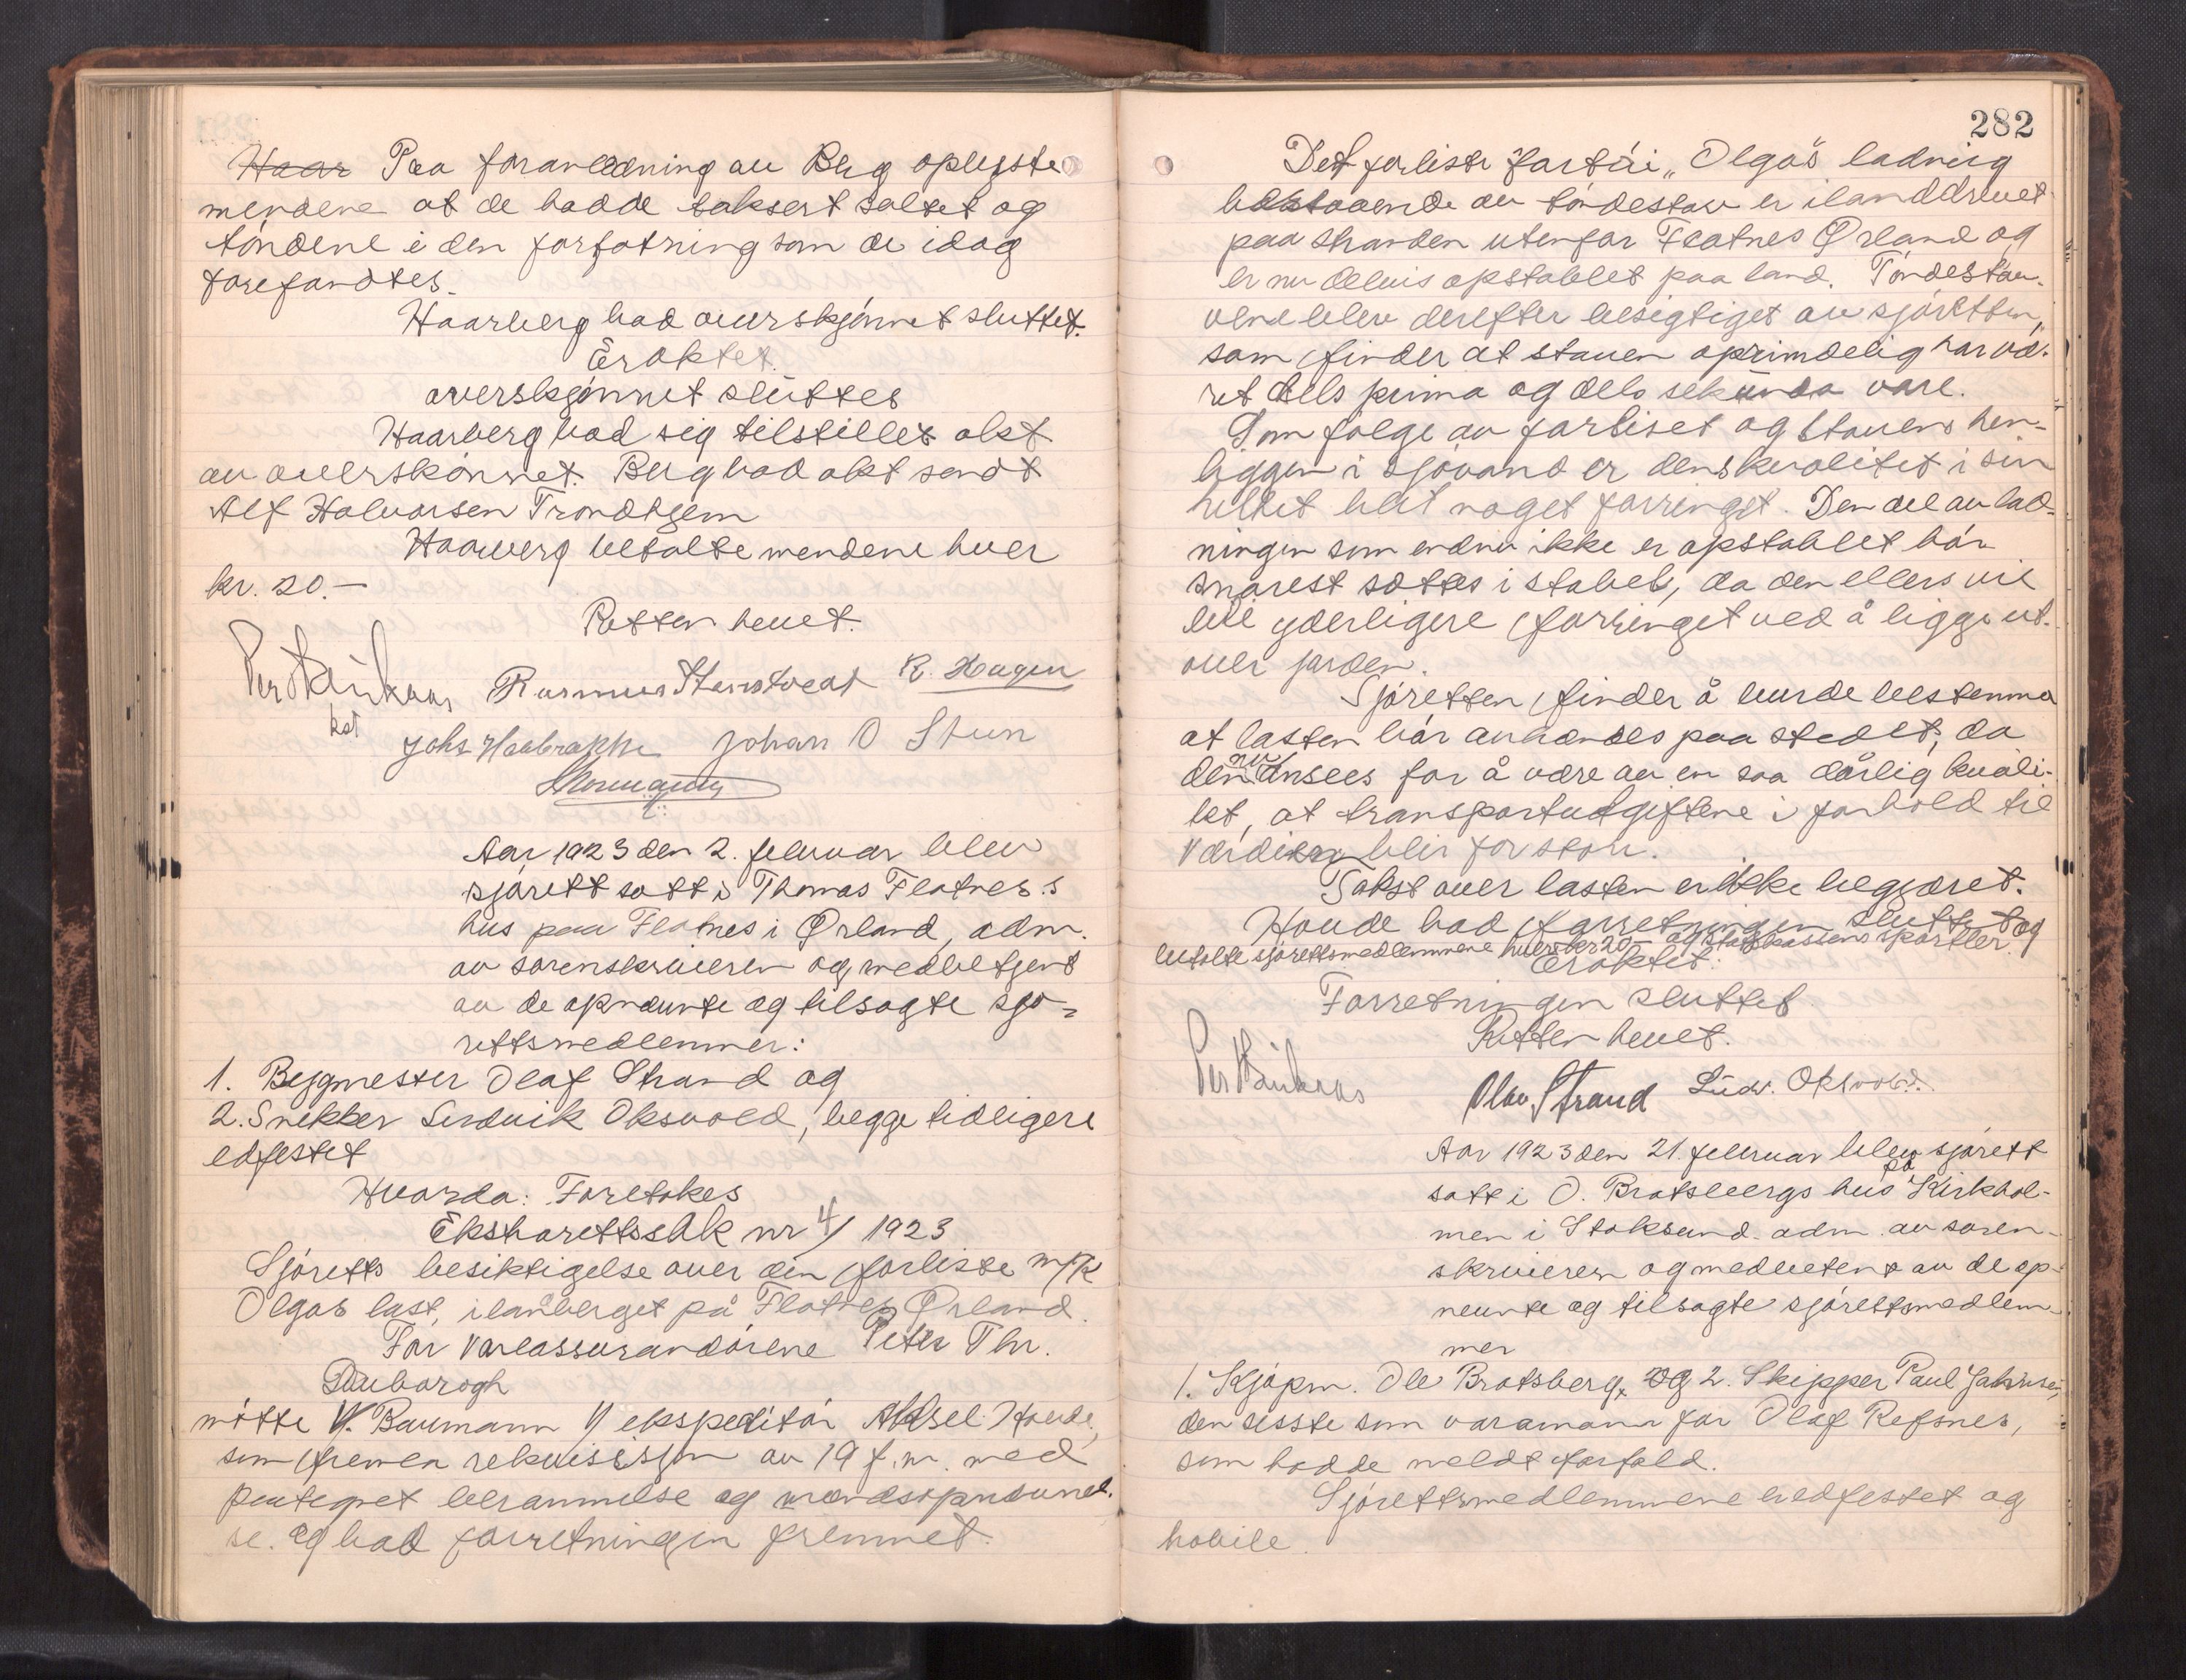 Haar Paa foranledning av Berg oplyste
mendene at de hadde taksert saltet og
töndene i den forfatning som de idag
forefandtes.
Haarberg bad overskjønnet sluttet.
Eraktet.
overskjønnet sluttes
Haarberg bad sig tilstillet akt
av overskønnet. Berg bad akt sendt
Alf Halvorsen Trondhjem
Haarberg betalte mendene hver
kr. 20.—
Retten hevet.
Rasmus R. Hagen
kst
Johan O Steen
Aar 1923 den 2. februar blev
sjörett satt i Thomas Flatnes.s
hus paa Flatnes i Ørland, adm.
av sorenskriveren og medbetjent
av de opnævnte og tilsagte sjö-
rettsmedlemmer:
1. Bygmester Olaf Strand og
2. Snekker Ludvik Oksvold, begge tidligere
edfestet
Hvorda: Foretokes
Ekstrarettssak nr 4/ 1923
Sjöretts besiktigelse over den forliste m/k
Olgas last, ilandberget på Flatnes Ørland.
For vareassurandörene Peter Thr.
Duborgh
mötte V. Baumann v/ ekspeditör Aksel Hovde,
som fremla rekvisisjon av 19 f.m. med
paategnet berammelse og mændsopnævnel-
se. og bad forretningen fremmet.
282
Det forliste fartöi „Olga"s ladning
bestaaende av töndestav er ilanddrevet
paa stranden utenfor Flatnes Ørland og
er nu delvis opstablet paa land. Töndesta-
vene blev derefter besigtiget av sjöretten,
som finder at staven oprindelig har væ-
ret dels prima og dels sekunda vare.
Som følge av forliset og stavens hen-
liggen i sjövand er dens kvalitet i sin
helhet blit noget forringet. Den del av lad-
ningen som endnu ikke er opstablet bör
snarest sættes i stabel, da den ellers vil
bli yderligere forringet ved å ligge ut-
over jorden.
Sjöretten finder å burde bestemme
at lasten bör avhændes paa stedet, da
den nu ansees for å være av en saa dårlig kvali-
tet, at transportudgiftene i forhold til
værdien blir for store.
Takst over lasten er ikke begjæret.
Hovde bad forretningen sluttet og
betalte sjörettsmedlemmene hver kr 20— og statskassens sportler.
Eraktet:
Forretningen sluttet.
Retten hevet.
Olav Strand Ludv. Oksvold.
Aar 1923 den 21. februar blev sjörett
satt i O. Bratsbergs hus på Kirkhol-
men i Stoksund. adm. av soren-
skriveren og medbetent av de op-
nevnte og tilsagte sjörettsmedlem-
mer
1. Kjøpm. Ole Bratsberg, og 2. Skipper Paul Jakobsen,
den sisste som varamann for Olaf Refsnes,
som hadde meldt forfald.
Sjörettsmedlemmene edfestet og
habile.